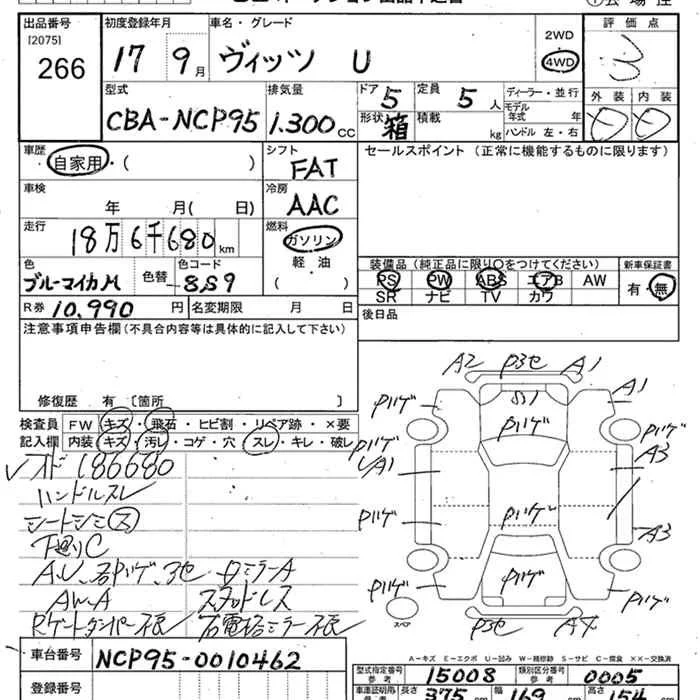 出品番号
[2075]
266
初度登録年月
17 9月
車名・グレード
ヴィッツ U
2WD
4WD
評価点
3
外装 内装
型式
CBA-NCP95
排気量
1.300cc
ドア 5
定員 5人
形状 箱
積載 kg
ディーラー・並行
モデル年式 年
ハンドル 左・右
車歴
自家用・( )
シフト
FAT
セールスポイント (正常に機能するものに限ります)
車検
年 月( 日)
冷房
AAC
走行
18万6千680km
燃料
ガソリン
軽・油
( )
色
ブルーマイカM
色替
色コード
8S9
装備品 (純正品に限り○をつけてください)
新車保証書
PS PW ABS エアB AW
SR ナビ TV カワ
有・無
R券 10,990円
名変期限 月 日
後日品
注意事項申告欄(不具合内容等は具体的に記入して下さい)
修復歴 有〔箇所 〕
検査員記入欄
FW キズ・飛石・ヒビ割・リペア跡・×要
内装 キズ・汚レ・コゲ・穴・スレ・キレ・破レ
オド186680
ハンドルスレ
シートシミ ス
下廻りC
A.U、各Pハゲ、3セ
ロミラーA
AW-A
スタッドレス
Rゲートダンパー不良
右電格ミラー不良
A2 P3セ A1
A1
Pハゲ
Pハゲ
Pハゲ
Pハゲ
A1
A3
Pハゲ
Pハゲ
A3
Pハゲ
Pハゲ
Pハゲ
スペア
P3セ A4
車台番号
NCP95-0010462
登録番号
A-キズ E-エクボ U-凹み W-補修跡 S-サビ C-腐食 ××-交換済
型式指定番号 参考
15008
類別区分番号 参考
0005
長さ 375cm
幅 169cm
高さ 154cm